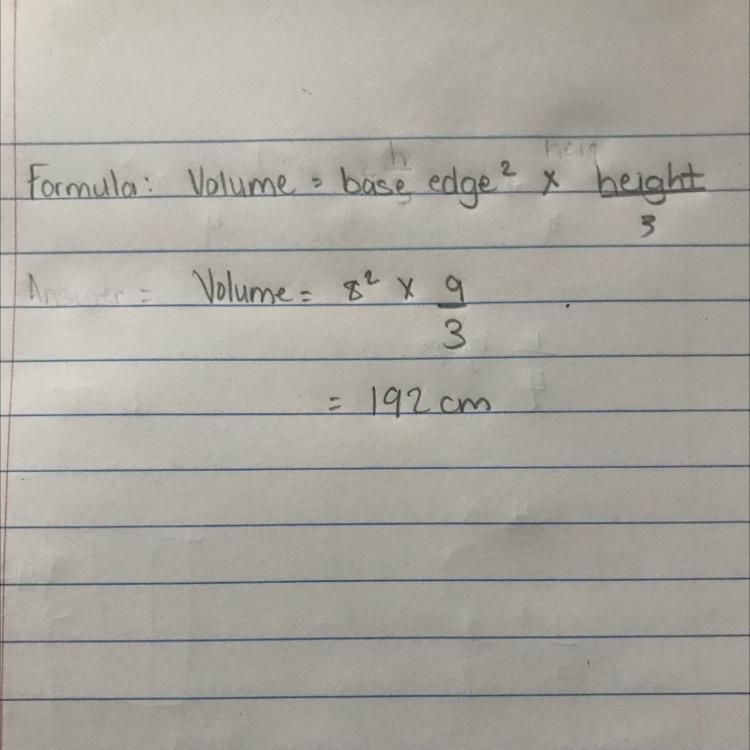 Formula: Volume = base edge² × height/3
Answer = Volume = 8² × 9/3
= 192 cm